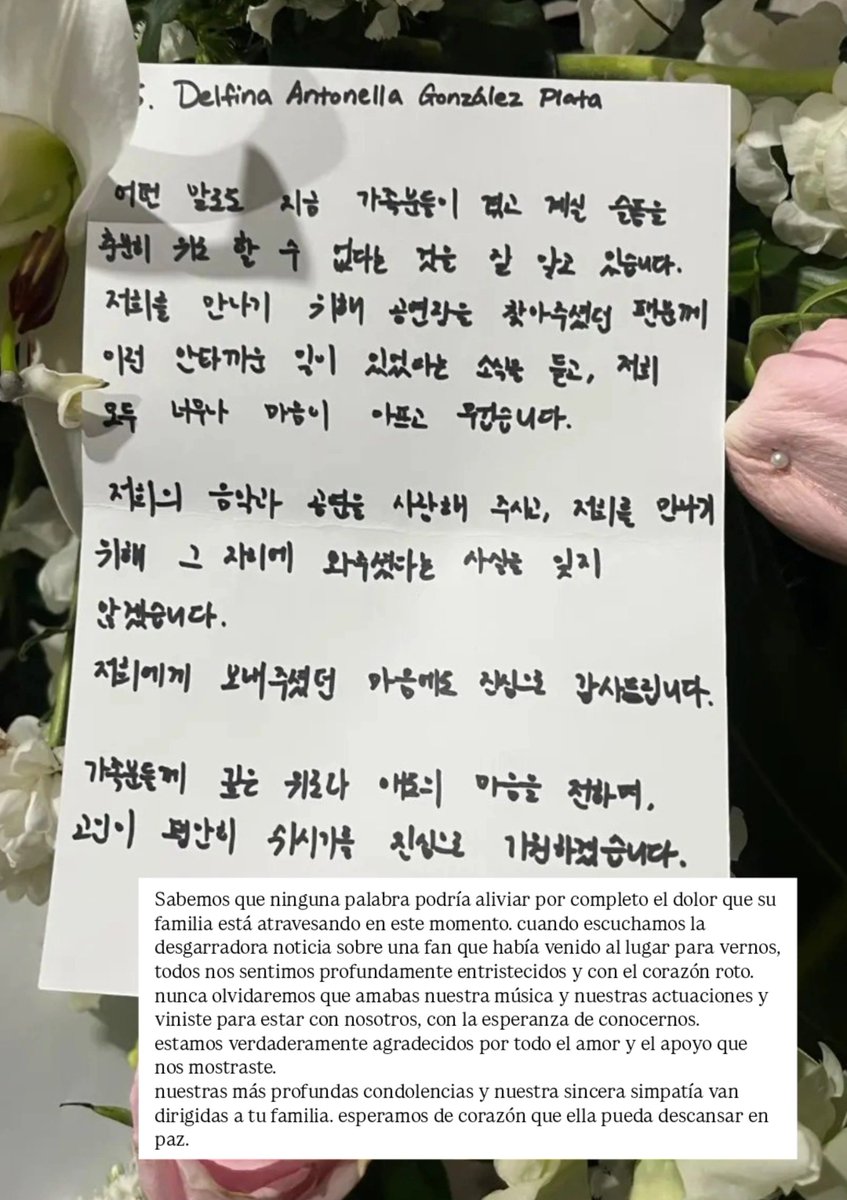 S. Delfina Antonella González Plata
어떤 말로도 지금 가족분들이 겪고 계실 슬픔을
충분히 위로 할 수 없다는 것을 잘 알고 있습니다.
저희를 만나기 위해 공연장을 찾아주셨던 팬분께
이런 안타까운 일이 있었다는 소식을 듣고, 저희
모두 너무나 마음이 아프고 무겁습니다.
저희의 음악과 공연을 사랑해 주시고, 저희를 만나기
위해 그 자리에 와주셨다는 사실을 잊지
않겠습니다.
저희에게 보내주셨던 마음에도 진심으로 감사드립니다.
가족분들께 깊은 위로와 애도의 마음을 전하며,
고인이 평안히 쉬시기를 진심으로 기원하겠습니다.
Sabemos que ninguna palabra podría aliviar por completo el dolor que su
familia está atravesando en este momento. cuando escuchamos la
desgarradora noticia sobre una fan que había venido al lugar para vernos,
todos nos sentimos profundamente entristecidos y con el corazón roto.
nunca olvidaremos que amabas nuestra música y nuestras actuaciones y
viniste para estar con nosotros, con la esperanza de conocernos.
estamos verdaderamente agradecidos por todo el amor y el apoyo que
nos mostraste.
nuestras más profundas condolencias y nuestra sincera simpatía van
dirigidas a tu familia. esperamos de corazón que ella pueda descansar en
paz.